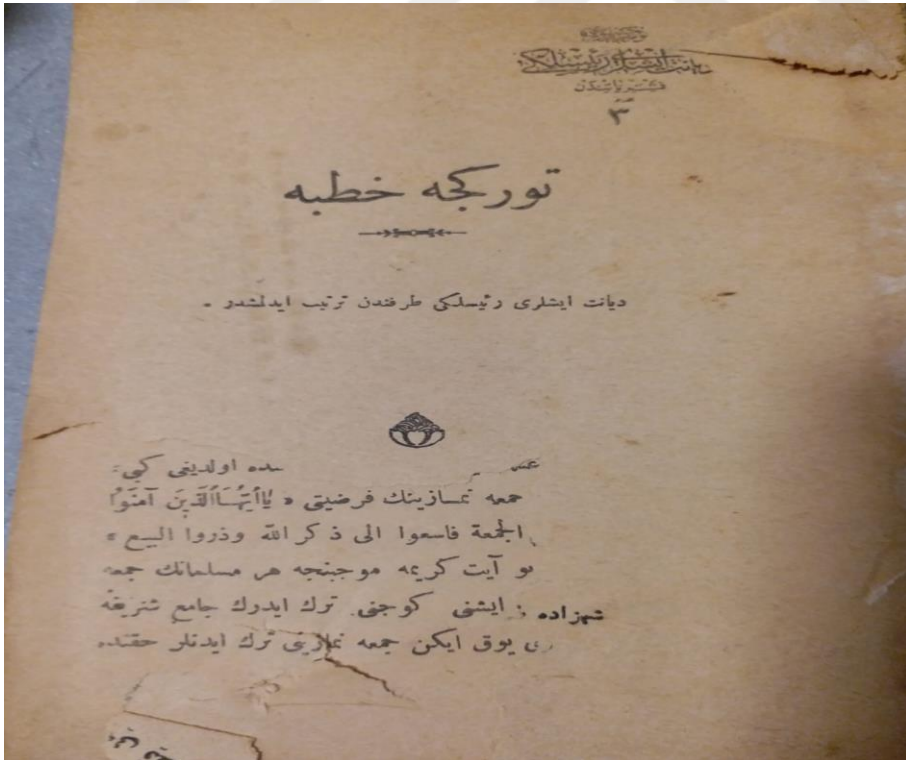 دیانت ایشلری رئیسلکی
نشریاتندن
عدد
٣
تورکجه خطبه
دیانت ایشلری رئیسلکی طرفندن ترتیب ایدلمشدر .
ـسده اولدیغی کبی،
جمعه نمازینك فرضیتی « یَاأَیُّهَاالَّذِینَ آمَنُوا
الجمعة فاسعوا الی ذکر الله وذروا البیع »
بو آیت کریمه موجبنجه هر مسلمانك جمعه
شهزاده ایشنی کوجنی ترك ایدرك جامع شریفه
ری یوق ایکن جمعه نمازینی ترك ایدنلر حقنده